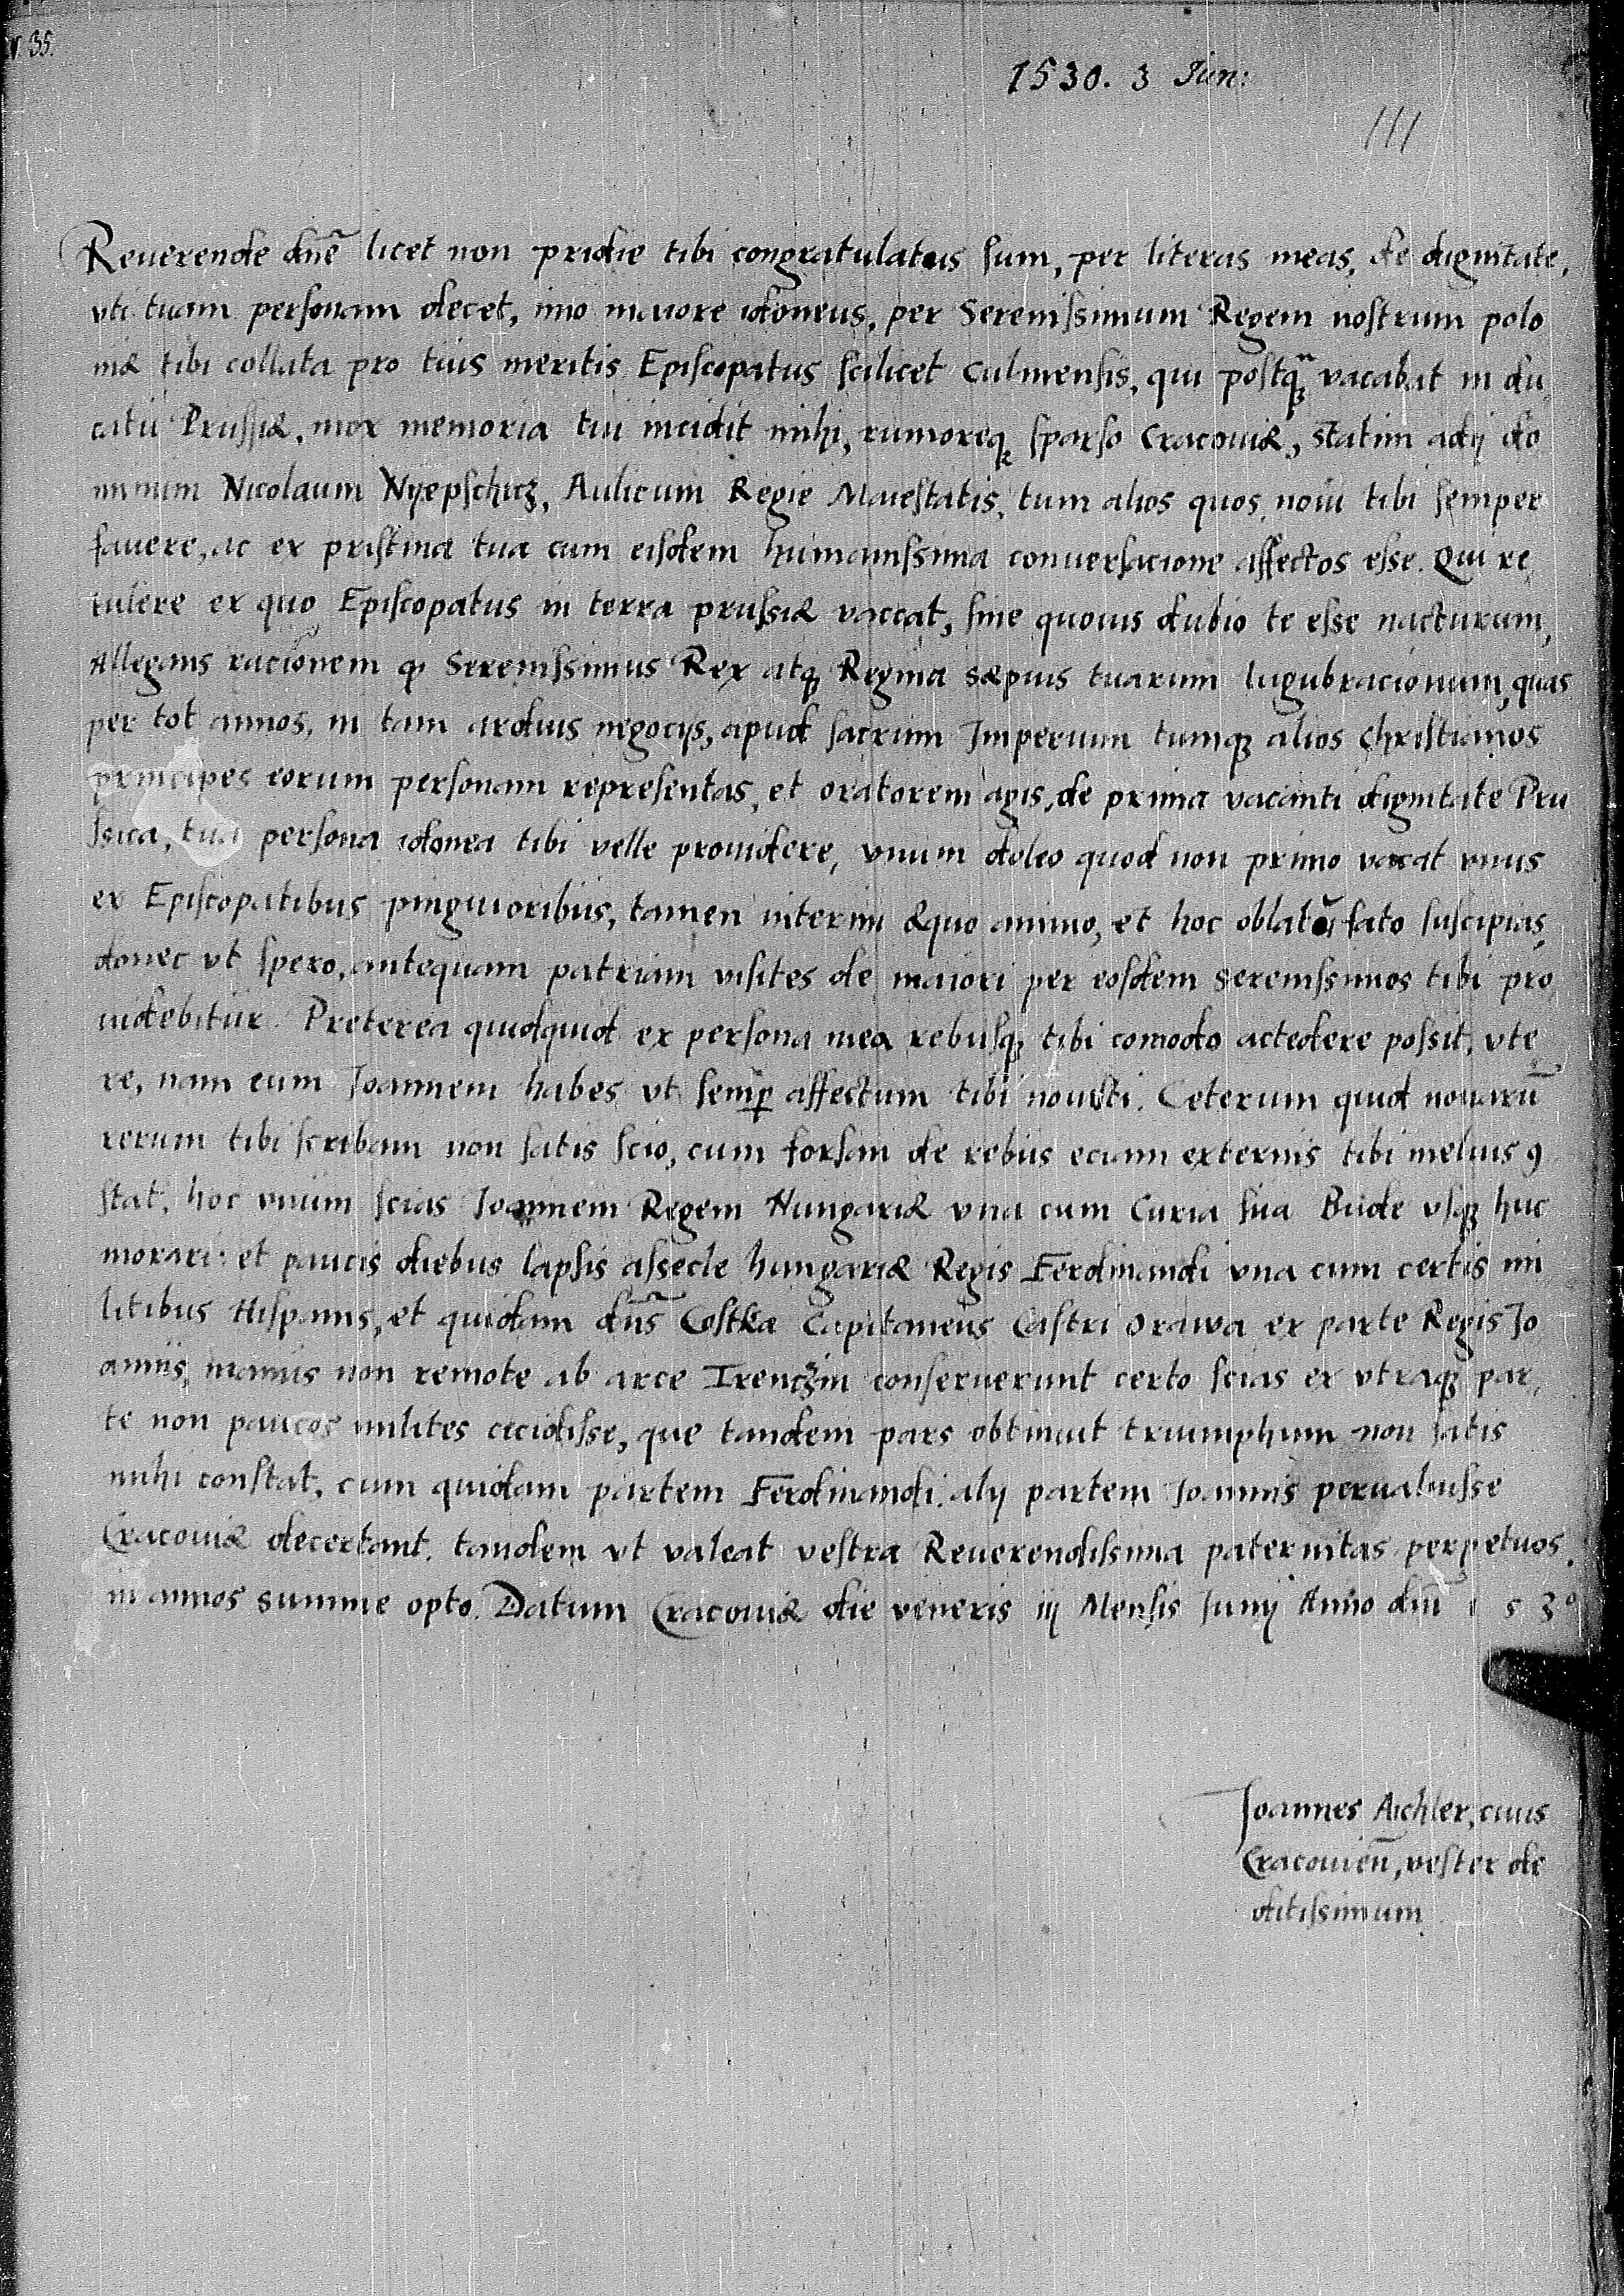 35.
1530. 3 Jun:
111
Reuerende dn̄e licet non pridie tibi congratulatus sum, per literas meas, de dignitate,
vti tuam personam decet, imo maiore idoneus, per Serenissimum Regem nostrum polo
niæ tibi collata pro tuis meritis Episcopatus scilicet Culmensis, qui postq̃ vacabat in du
catu Prussiæ, mox memoria tui incidit mihi, rumoreq; sparso Cracouiæ, statim adij do
minum Nicolaum Nyepschicz, Aulicum Regie Maiestatis, tum alios quos noui tibi semper
fauere, ac ex pristina tua cum eisdem humanissima conuersacione affectos esse. Qui re
tulere ex quo Episcopatus in terra prussiæ vaccat, sine quouis dubio te esse nacturum,
Allegans racionem q̨ Serenissimus Rex atq; Regina sæpius tuarum lugubracionum, quas
per tot annos, in tam arduis negocijs, apud sacrum Imperium tumq; alios christianos
principes eorum personam representas, et oratorem agis, de prima vacanti dignitate Pru
ssica, tua persona idonea tibi velle prouidere, vnum doleo quod non primo vacat vnus
ex Episcopatibus pinguioribus, tamen interim æquo animo, et hoc oblatū fato suscipias,
donec vt spero, antequam patriam visites de maiori per eosdem serenissimos tibi pro
uidebitur. Preterea quidquid ex persona mea rebusq; tibi comodo actedere possit, vte
re, nam eum Joannem habes vt semp̱ affectum tibi nouisti. Ceterum quid nouarū
rerum tibi scribam non satis scio, cum forsan de rebus eciam externis tibi melius ꝯ
stat, hoc vnum scias Joannem Regem Hungariæ vna cum Curia sua Bude vsq; huc
morari: et paucis diebus lapsis assecle hungariæ Regis Ferdinandi vna cum certis mi
litibus Hispanis, et quidam dn̄s Costka Capitaneus Castri Orawa ex parte Regis Jo
annis, manus non remote ab arce Trenczin conseruerunt certo scias ex vtraq; par,
te non paucos milites cecidisse, que tandem pars obtinuit triumphum non satis
mihi constat, cum quidam partem Ferdinandi, alij partem Joannis perualuisse
Cracouiæ decertant. tandem vt valeat vestra Reuerendissima paternitas perpetuos
in annos summe opto. Datum Cracouiæ die veneris iij Mensis Junij Anno dn̄i 1530
Joannes Aichler, ciuis
Cracouien̄, vester de
ditissimum